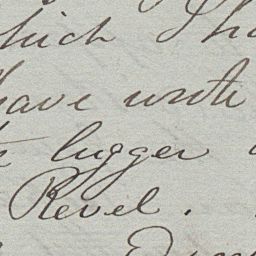 which I ha
have wrote
lugger
Revel.